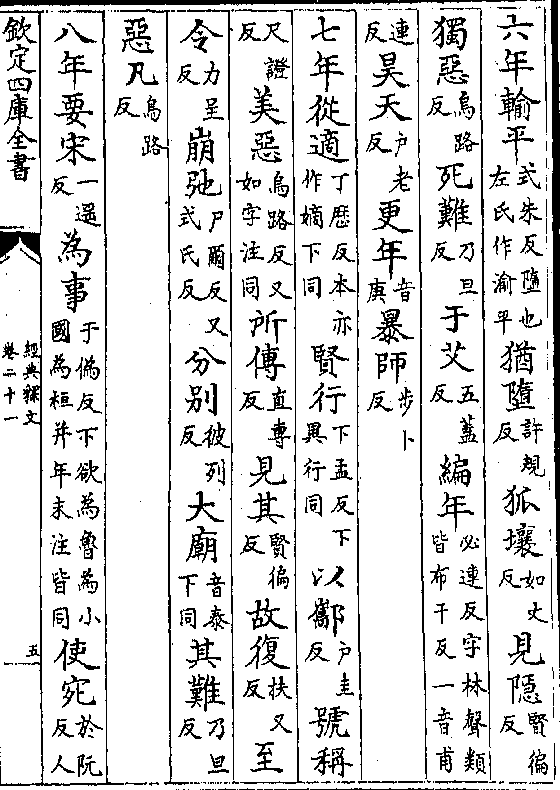 六年輸平式朱反墮也左氏作渝平猶墮許規反狐壤如丈反見隱賢徧反
獨惡烏路反死難乃旦反于艾五蓋反編年必連反字林聲類皆布干反一音甫
連反昊天戶老反更年音庚暴師步卜反
七年從適丁歷反本亦作嫡下同賢行下孟反下異行同以酅戶圭反號稱
尺證反美惡烏路反又如字注同所傳直專反見其賢徧反故復扶又反至
令力呈反崩弛尸爾反又式氏反分别彼列反大廟音泰下同其難乃旦反
惡凡烏路反
八年要宋一遥反為事于偽反下欲為魯為小國為桓并年末注皆同使宛於阮反人
欽定四庫全書
經典釋文
卷二十一
五